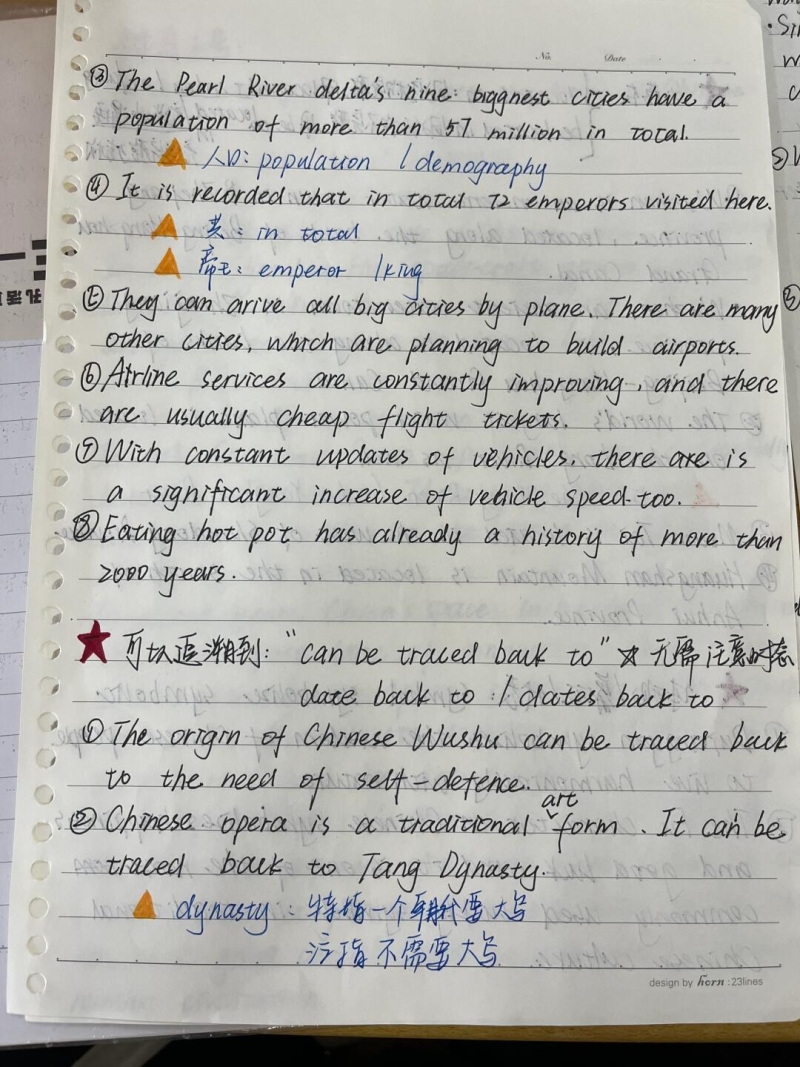 No. Date
③ The Pearl River delta's nine biggnest cities have a
population of more than 57 million in total.
人口: population / demography
④ It is recorded that in total 72 emperors visited here.
共: in total
帝王: emperor / king
⑤ They can arive all big cities by plane. There are many
other cities, which are planning to build airports.
⑥ Airline services are constantly improving, and there
are usually cheap flight tickets.
⑦ With constant updates of vehicles, there are is
a significant increase of vehicle speed too.
⑧ Eating hot pot has already a history of more than
2000 years.
★ 可以追溯到: "can be traced back to" ☆ 无需注意时态
date back to / dates back to
① The origin of Chinese Wushu can be traced back
to the need of self-defence.
art
② Chinese opera is a traditional form. It can be
traced back to Tang Dynasty.
dynasty: 特指一个朝代需大写
泛指不需要大写
design by horn: 23lines